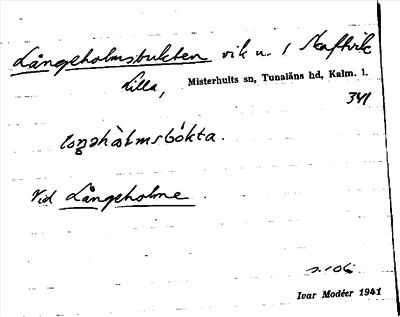 Långeholmsbukten vik u. / Skaftvik
Lilla, Misterhults sn, Tunaläns hd, Kalm. l.
341
loŋəhòlmsbókta.
Vid Långeholme.
s. 106
Ivar Modéer 1941